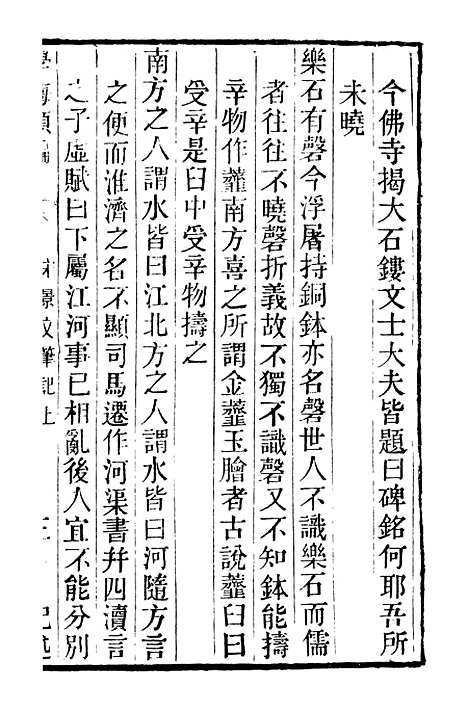 今佛寺揭大石鏤文士大夫皆題曰碑銘何耶吾所
未曉
樂石有磬今浮屠持銅鉢亦名磬世人不識樂石而儒
者往往不曉磬折義故不獨不識磬又不知鉢能擣
辛物作虀南方喜之所謂金虀玉膾者古說虀臼曰
受辛是臼中受辛物擣之
南方之人謂水皆曰江北方之人謂水皆曰河隨方言
之便而淮濟之名不顯司馬遷作河渠書并四瀆言
之子虛賦曰下屬江河事已相亂後人宜不能分別
景文筆記上